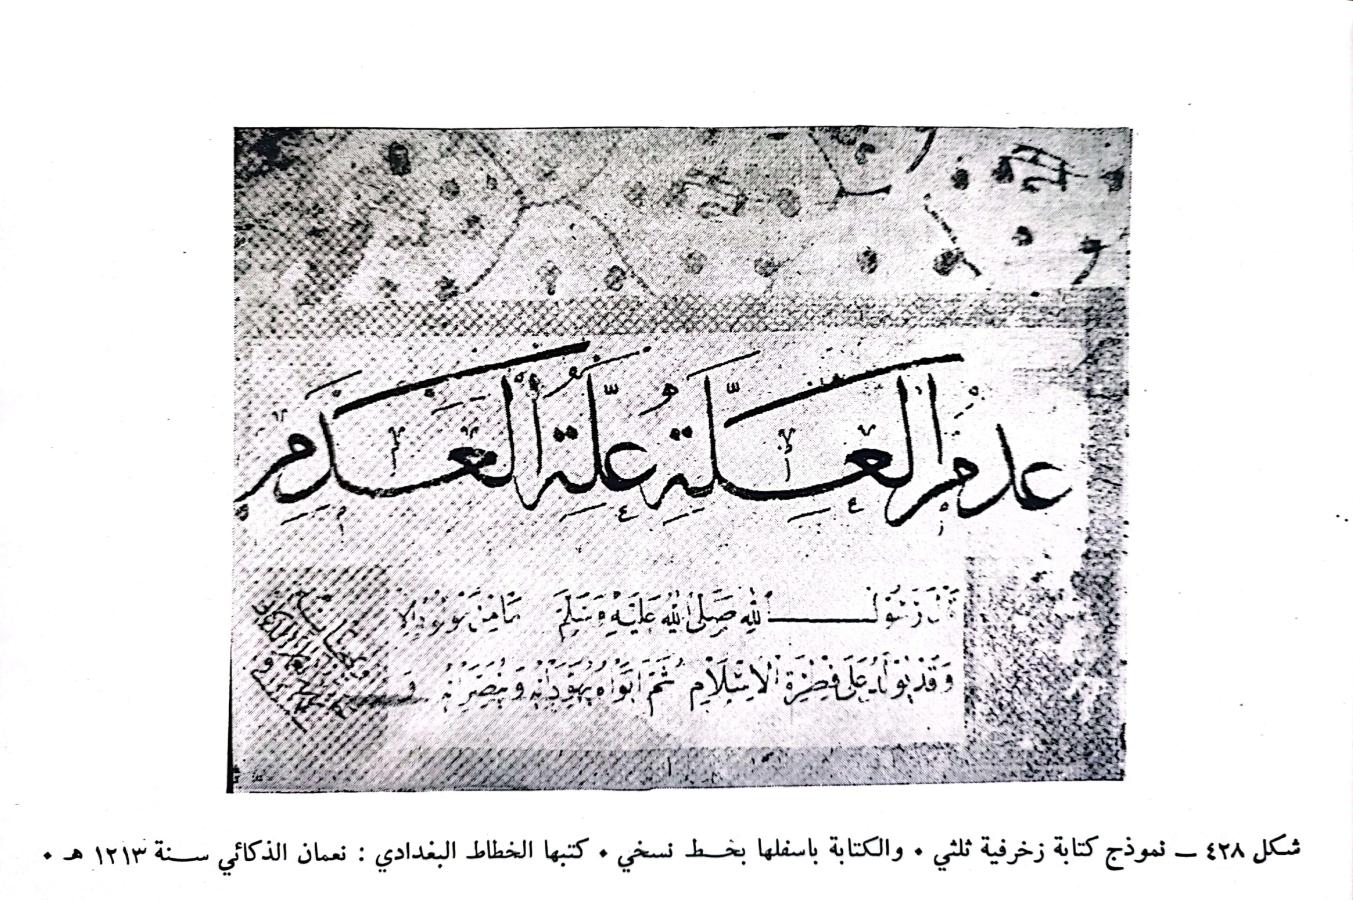 عدم العلة علة العدم
قال رسول الله صلى الله عليه وسلم ما من مولود الا
وقد يولد على فطرة الاسلام ثم ابواه يهودانه وينصرانه
شكل ٤٢٨ ــ نموذج كتابة زخرفية ثلثي ٠ والكتابة باسفلها بخط نسخي ٠ كتبها الخطاط البغدادي : نعمان الذكائي سنة ١٢١٣ هـ ٠